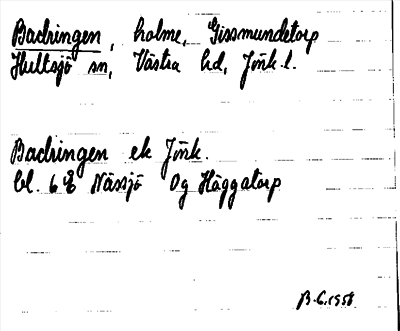 Badringen, holme, Gissmundetorp
Hultsjö sn, Västra hd, Jönk.l.
Badringen ek Jönk.
bl. 6 g Nässjö Dg Häggatorp
B.C. 1958